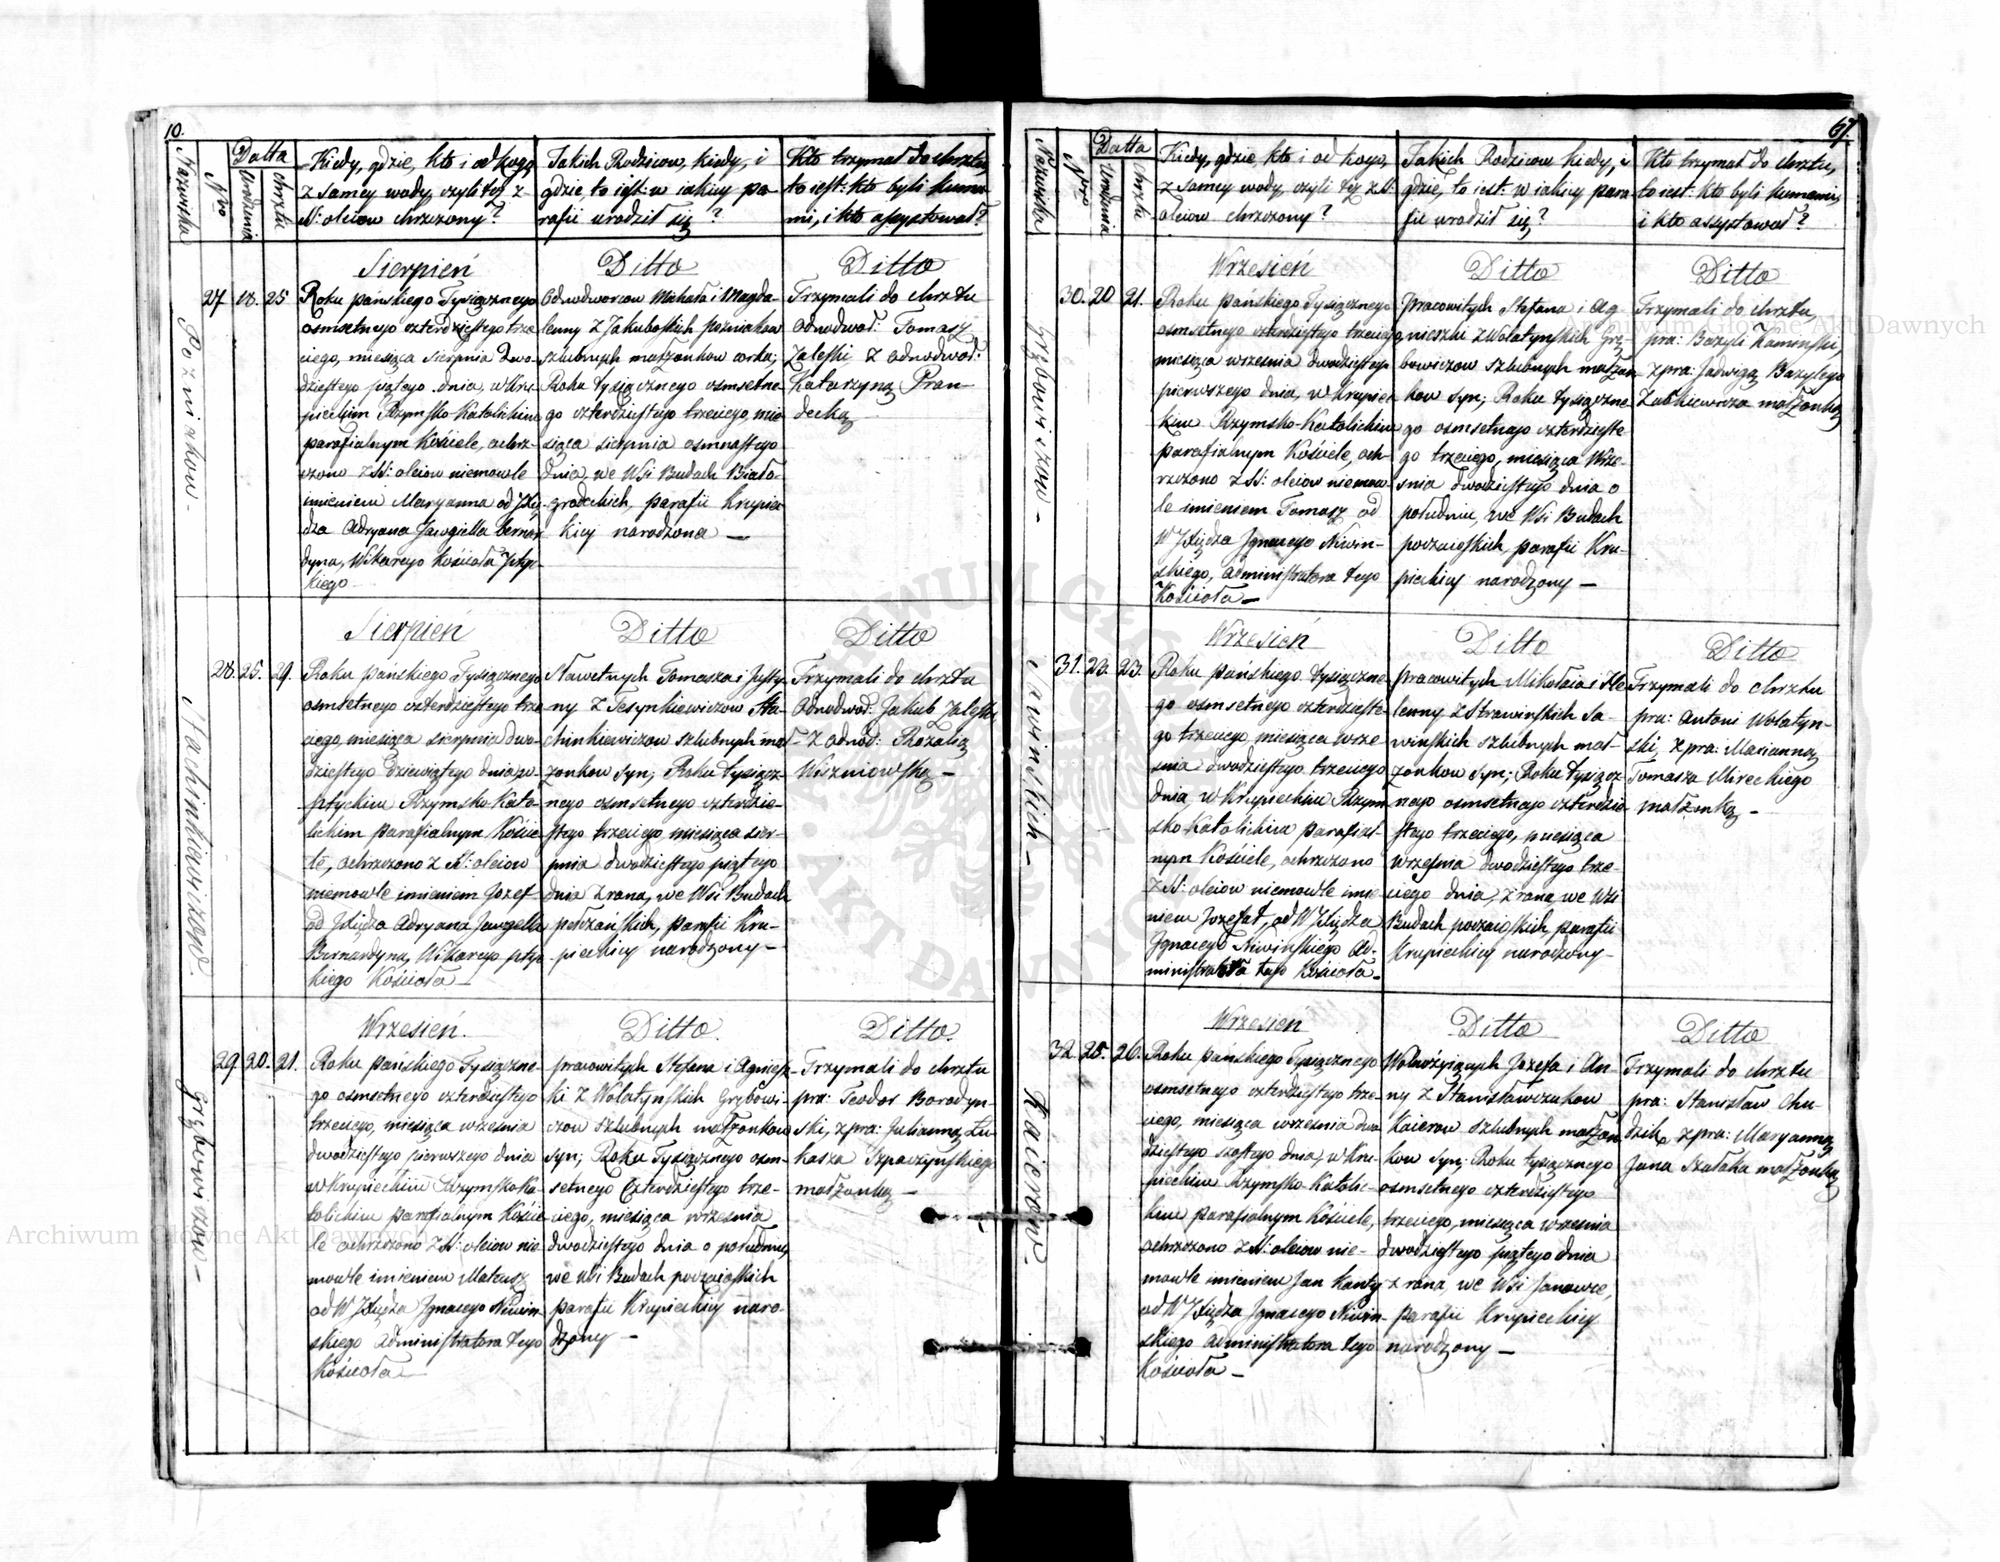 10.
Nazwiska
Nro
Datta
Urodzenia
chrztu
Kiedy, gdzie, kto i od kogo,
z samey wody, czyli też z
SS: oleiow chrzczony?
Jakich Rodzicow, kiedy, i
gdzie, to iest: w iakiey pa-
rafii urodził się?
Kto trzymał do chrztu,
to iest: kto byli kuma-
mi, i kto assystował?
Pozniakow -
27
18.
25
Sierpień
Roku pańskiego Tysiącznego
osmsetnego czterdziestego trze
ciego, miesiąca sierpnia dwo-
dziestego piątego dnia, w Kru
pieckim Rzymsko-Katolickim
parafialnym Kościele, ochrz-
czono z SS: oleiow niemowle
imieniem Maryanna od JXię-
dza Adryana Jawgiella bernar
dyna, Wikarego Kościoła
kiego
Ditto
Odnodworcow Michała i Magda-
lenny z Jakuboskich pozniakow
szlubnych małżonkow corka;
Roku tysiącznego osmsetne
go czterdziestego trzeciego, mie
siąca sierpnia osmnastego
dnia, we Wsi Budach Biało-
grodeckich, parafii Krupiec
kiey narodzona —
Ditto
Trzymali do chrztu
Odnodwor: Tomasz
Zaleski z odnodwor:
Katarzyną Pran-
decką
Stachinkiewiczow.
28.
25.
29.
Sierpień
Roku pańskiego Tysiącznego
osmsetnego czterdziestego trze
ciego, miesiąca sierpnia dwo-
dziestego dziewiątego dnia, w
Rzymsko-Kato-
lickim parafialnym Koście
le, ochrzczono z SS: oleiow
niemowle imieniem Jozef
od JXiędza Adryana Jawgella
Bernardyna, Wikarego
kiego Kościoła —
Ditto
Tomasza i Justy-
ny z Tesynkiewiczow Sta-
chinkiewiczow szlubnych mał-
żonkow syn; Roku tysiącz-
nego osmsetnego czterdzie-
stego trzeciego, miesiąca sier-
pnia dwodziestego piątego
dnia z rana, we Wsi Budach
parafii Kru-
pieckiey narodzony —
Ditto
Trzymali do chrztu
Odnodwor: Jakub Zaleski
z odnod: Rozalią
Wiszniowską —
Grzybowiczow -
29.
20.
21.
Wrzesień.
Roku pańskiego Tysiączne-
go osmsetnego czterdziestego
trzeciego, miesiąca września
dwodziestego pierwszego dnia
w Krupieckim Rzymsko Ka
tolickim parafialnym Koście
le ochrzczono z SS: oleiow nie-
mowle imieniem Mateusz
od W JXiędza Ignacego Niwin-
skiego administratora tego
Kościoła —
Ditto.
pracowitych Stefana i Agniesz-
ki z Wołatynskich Grzybowi-
czow szlubnych małżonkow
syn; Roku Tysiącznego osm-
setnego Czterdziestego trze-
ciego, miesiąca września
dwodziestego dnia o południu,
we Wsi Budach poczaioskich
parafii Krupieckiey naro-
dzony —
Ditto.
Trzymali do chrztu
pra: Teodor Borodyn-
ski, z pra: Julianną Łu-
kasza Szpaczynskiego
małżonką —
67.
Nazwiska
Nro
Datta
Urodzenia
chrztu
Kiedy, gdzie kto i od kogo,
z samey wody, czyli też z SS:
oleiow chrzczony?
Jakich Rodzicow kiedy, i
gdzie, to iest: w iakiey para
fii urodził się?
Kto trzymał do chrztu,
to iest: kto byli kumami,
i kto assystował?
Grzybowiczow -
30.
20
21.
Wrzesień
Roku pańskiego Tysiącznego
osmsetnego czterdziestego trzeciego
miesiąca września dwodziestego
pierwszego dnia, w Krupiec
kim Rzymsko-Katolickim
parafialnym Kościele, och-
rzczono z SS: oleiow niemow-
le imieniem Tomasz od
W JXiędza Ignacego Niwin-
skiego, administratora tego
Kościoła —
Ditto
pracowitych Stefana i Ag
nieszki z Wołatynskich Grzy-
bowiczow szlubnych małżon
kow syn; Roku tysiączne
go osmsetnego czterdzieste
go trzeciego, miesiąca Wrze-
snia dwodziestego dnia o
południu, we Wsi Budach
poczaioskich, parafii Kru-
pieckiey narodzony —
Ditto
Trzymali do chrztu,
pra: Bazyli Kaminski,
z pra: Jadwigą Bazylego
Zubkiewicza małżonką
Sawinskich -
31.
23.
23.
Wrzesień
Roku pańskiego tysiączne
go osmsetnego czterdzieste
go trzeciego, miesiąca wrze
snia dwodziestego trzeciego
dnia w Krupieckim Rzym
sko-Katolickim parafial-
nym Kościele, ochrzczono
z SS: oleiow niemowle imie
niem Jozefat, od W JXiędza
Ignacego Niwinskiego Ad-
ministratora tego Kościoła —
Ditto
pracowitych Mikołaia i He
lenny z Strawinskich Sa-
winskich szlubnych mał-
żonkow syn; Roku tysiącz
nego osmsetnego czterdzie
stego trzeciego, miesiąca
września dwodziestego trze-
ciego dnia, z rana, we Wsi
Budach poczaioskich, parafii
Krupieckiey narodzony —
Ditto
Trzymali do chrztu
pra: Antoni Wołatyn-
ski, z pra: Marianną
Tomasza Mireckiego
małżonką —
Kaierow.
32.
25.
26.
Wrzesień
Roku pańskiego Tysiącznego
osmsetnego czterdziestego trze-
ciego, miesiąca września dwo
dziestego szostego dnia, w Kru-
pieckim Rzymsko-Katolic-
kim parafialnym Kościele,
ochrzczono z SS: oleiow nie-
mowle imieniem Jan Kanty
od W JXiędza Ignacego Niwin-
skiego administratora tego
Kościoła —
Ditto
Jozefa i An-
ny z Stanisławczukow
Kaierow szlubnych małżon
kow syn; Roku tysiącznego
osmsetnego czterdziestego
trzeciego, miesiąca września
dwodziestego piątego dnia
z rana, we Wsi Janowce,
parafii Krupieckiey
narodzony —
Ditto
Trzymali do chrztu
pra: Stanisław Chu-
dzik, z pra: Maryanną
Jana Szałaka małżonką
Archiwum Główne Akt Dawnych
Archiwum Główne Akt Dawnych
ARCHIWUM GŁÓWNE AKT DAWNYCH